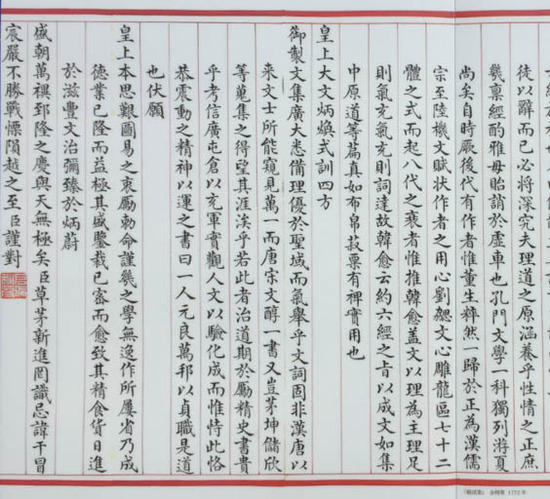 徒以辭而已必將深究夫理道之原涵養乎性情之正庶
幾稟經酌雅毋貽誚於虛車也孔門文學一科獨列游夏
尚矣自時厥後代有作者惟董生粹然一歸於正為漢儒
宗至陸機文賦狀作者之用心劉勰文心雕龍區七十二
體之式而起八代之衰者惟推韓愈蓋文以理為主理足
則氣充氣充則詞達故韓愈云約六經之旨以成文如集
中原道等篇真如布帛菽粟有裨實用也
皇上大文炳煥式訓四方
御製文集廣大悉備理優於聖域而氣舉乎文詞固非漢唐以
來文士所能窺見萬一而唐宋文醇一書又豈茅坤儲欣
等蒐集之得望其涯涘乎若此者治道期於勵精史書貴
乎考信廣屯倉以充軍實觀人文以驗化成而惟恃此恪
恭震動之精神以運之書曰一人元良萬邦以貞職是道
也伏願
皇上本思艱圖易之衷勵勅命謹幾之學無逸作所屢省乃成
德業已隆而益極其盛鑒裁已審而愈致其精食貨日進
於滋豐文治彌臻於炳蔚
盛朝萬禩郅隆之慶與天無極矣臣草茅新進罔識忌諱干冒
宸嚴不勝戰慄隕越之至臣謹對
1772年